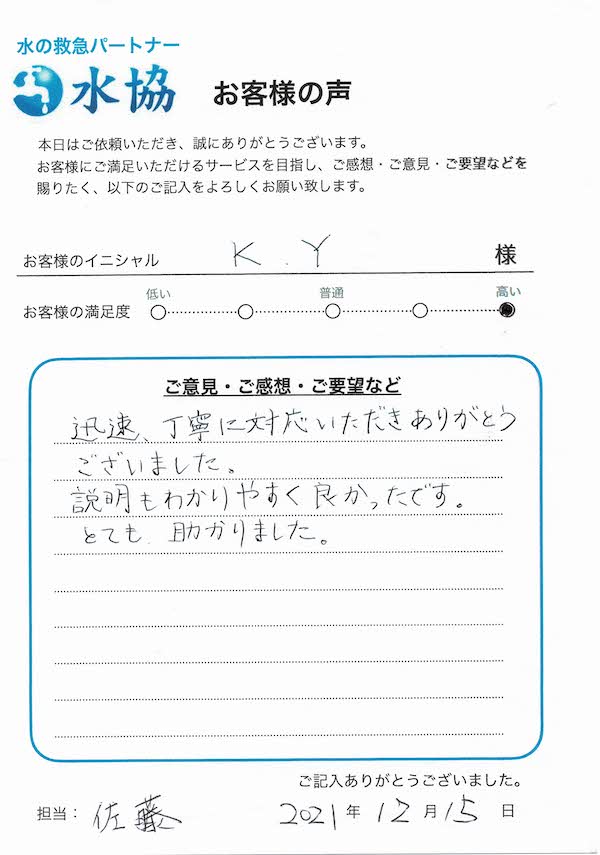 水の救急パートナー
水協 お客様の声
本日はご依頼いただき、誠にありがとうございます。
お客様にご満足いただけるサービスを目指し、ご感想・ご意見・ご要望などを
賜りたく、以下のご記入をよろしくお願い致します。
お客様のイニシャル K.Y 様
低い 普通 高い
お客様の満足度
ご意見・ご感想・ご要望など
迅速、丁寧に対応いただきありがとう
ございました。
説明もわかりやすく良かったです。
とても、助かりました。
ご記入ありがとうございました。
担当： 佐藤 2021年12月15日